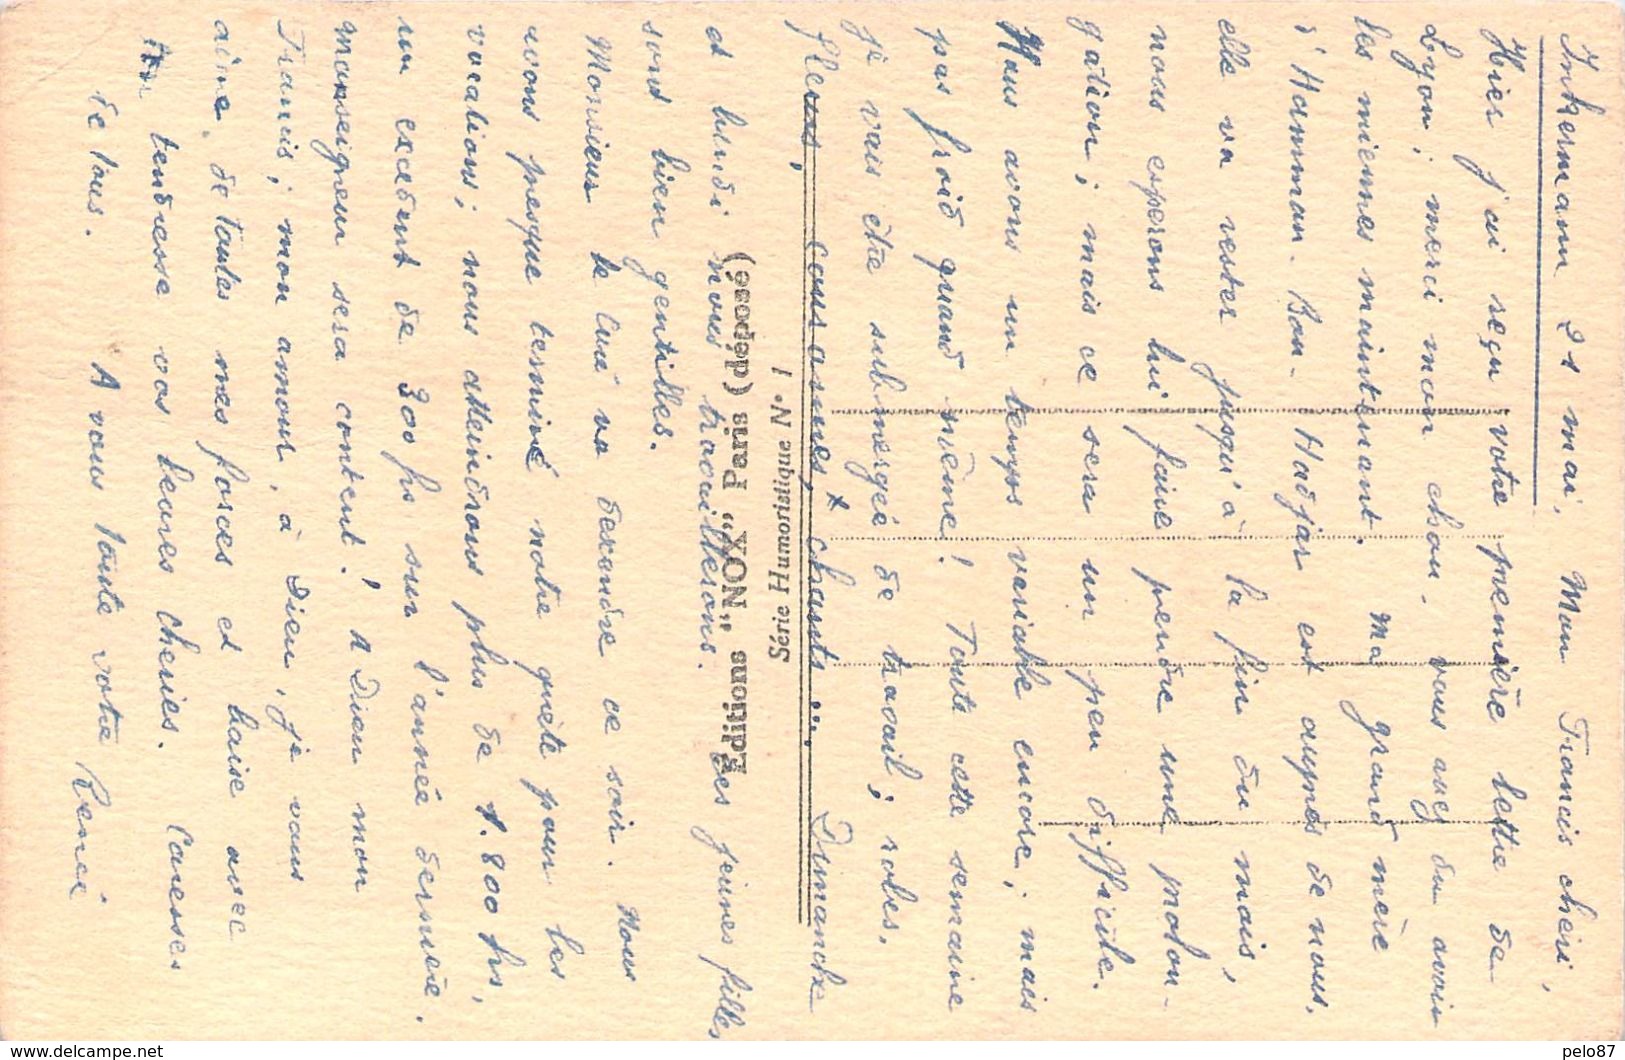 Inkermann 21 mai. Mon Francis chéri,
Hier j'ai reçu votre première lettre de
Lyon ; merci mon chou. vous avez du avoir
les miennes maintenant. Ma grand mère
d'Hamman-Bou-Hadjar est auprès de nous,
elle va rester jusqu'à la fin du mois,
nous esperons lui faire pendre une prolon-
gation ; mais ce sera un peu difficile.
Nous avons un temps variable encore ; mais
pas froid quand même ! Toute cette semaine
je vais être submergée de travail ; robes,
fleurs, couronnes, chants ... Dimanche
et lundi nous travaillerons. Les jeunes filles
sont bien gentilles.
Monsieur le Curé va descendre ce soir. Nous
avons presque terminé notre quête pour les
vocations ; nous atteindrons plus de 1.800 frs,
un excédent de 300 frs sur l'année dernière.
Monseigneur sera content ! A Dieu mon
Francis ; mon amour, à Dieu, je vous
aime de toutes mes forces et baise avec
tendresse vos levres chéries. Caresses
de tous. A vous toute votre Renée
Editions "NOX" Paris (déposé)
Série Humoristique N° 1
www.delcampe.net
pelo87